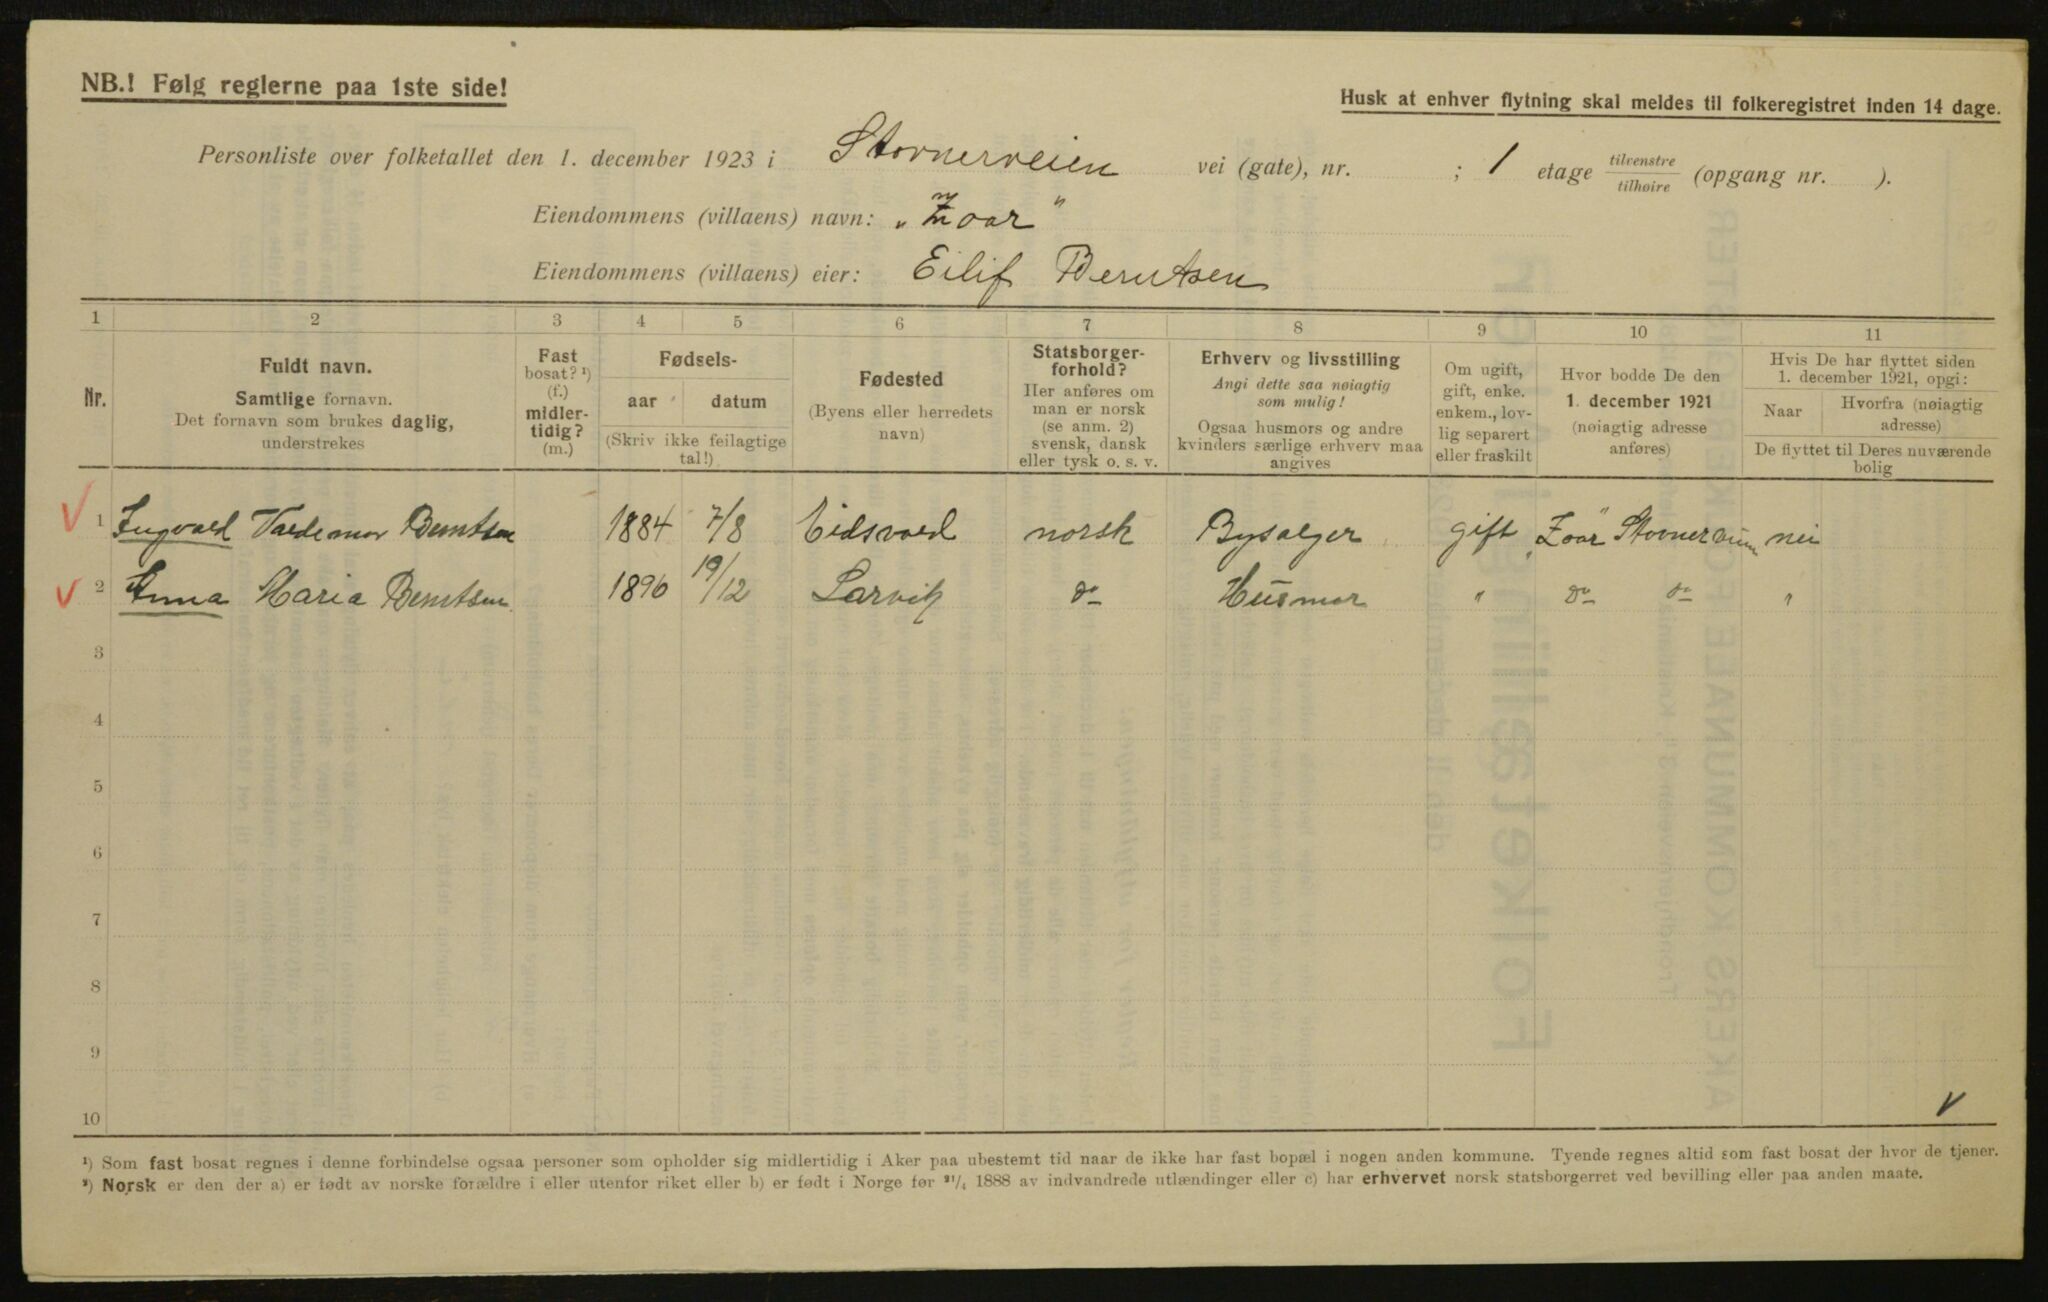 NB.! Følg reglerne paa 1ste side!
Husk at enhver flytning skal meldes til folkeregistret inden 14 dage.
Personliste over folketallet den 1. december 1923 i Stovnerveien vei (gate), nr. ; 1 etage tilvenstre/tilhøire (opgang nr. ).
Eiendommens (villaens) navn: „Zoar"
Eiendommens (villaens) eier: Eilif Berntsen
1 2 3 4 5 6 7 8 9 10 11
Nr.
Fuldt navn.
Samtlige fornavn.
Det fornavn som brukes daglig,
understrekes
Fast
bosat? ¹)
(f.)
midler-
tidig?
(m.)
Fødsels-
aar datum
(Skriv ikke feilagtige
tal!)
Fødested
(Byens eller herredets
navn)
Statsborger-
forhold?
Her anføres om
man er norsk
(se anm. 2)
svensk, dansk
eller tysk o. s. v.
Erhverv og livsstilling
Angi dette saa nøiagtig
som mulig!
Ogsaa husmors og andre
kvinders særlige erhverv maa
angives
Om ugift,
gift, enke.
enkem., lov-
lig separert
eller fraskilt
Hvor bodde De den
1. december 1921
(nøiagtig adresse
anføres)
Hvis De har flyttet siden
1. december 1921, opgi:
Naar
Hvorfra (nøiagtig
adresse)
De flyttet til Deres nuværende
bolig
1 Ingvald Valdemar Berntsen 1884 7/8 Eidsvold norsk Bysælger gift „Zoar" Stovnerveien nei
2 Anna Maria Berntsen. 1896 19/12 Larvik do Husmor " do do "
3
4
5
6
7
8
9
10
¹) Som fast bosat regnes i denne forbindelse ogsaa personer som opholder sig midlertidig i Aker paa ubestemt tid naar de ikke har fast bopæl i nogen anden kommune. Tyende regnes altid som fast bosat der hvor de tjener.
²) Norsk er den der a) er født av norske forældre i eller utenfor riket eller b) er født i Norge før ²¹/₄ 1888 av indvandrede utlændinger eller c) har erhvervet norsk statsborgerret ved bevilling eller paa anden maate.